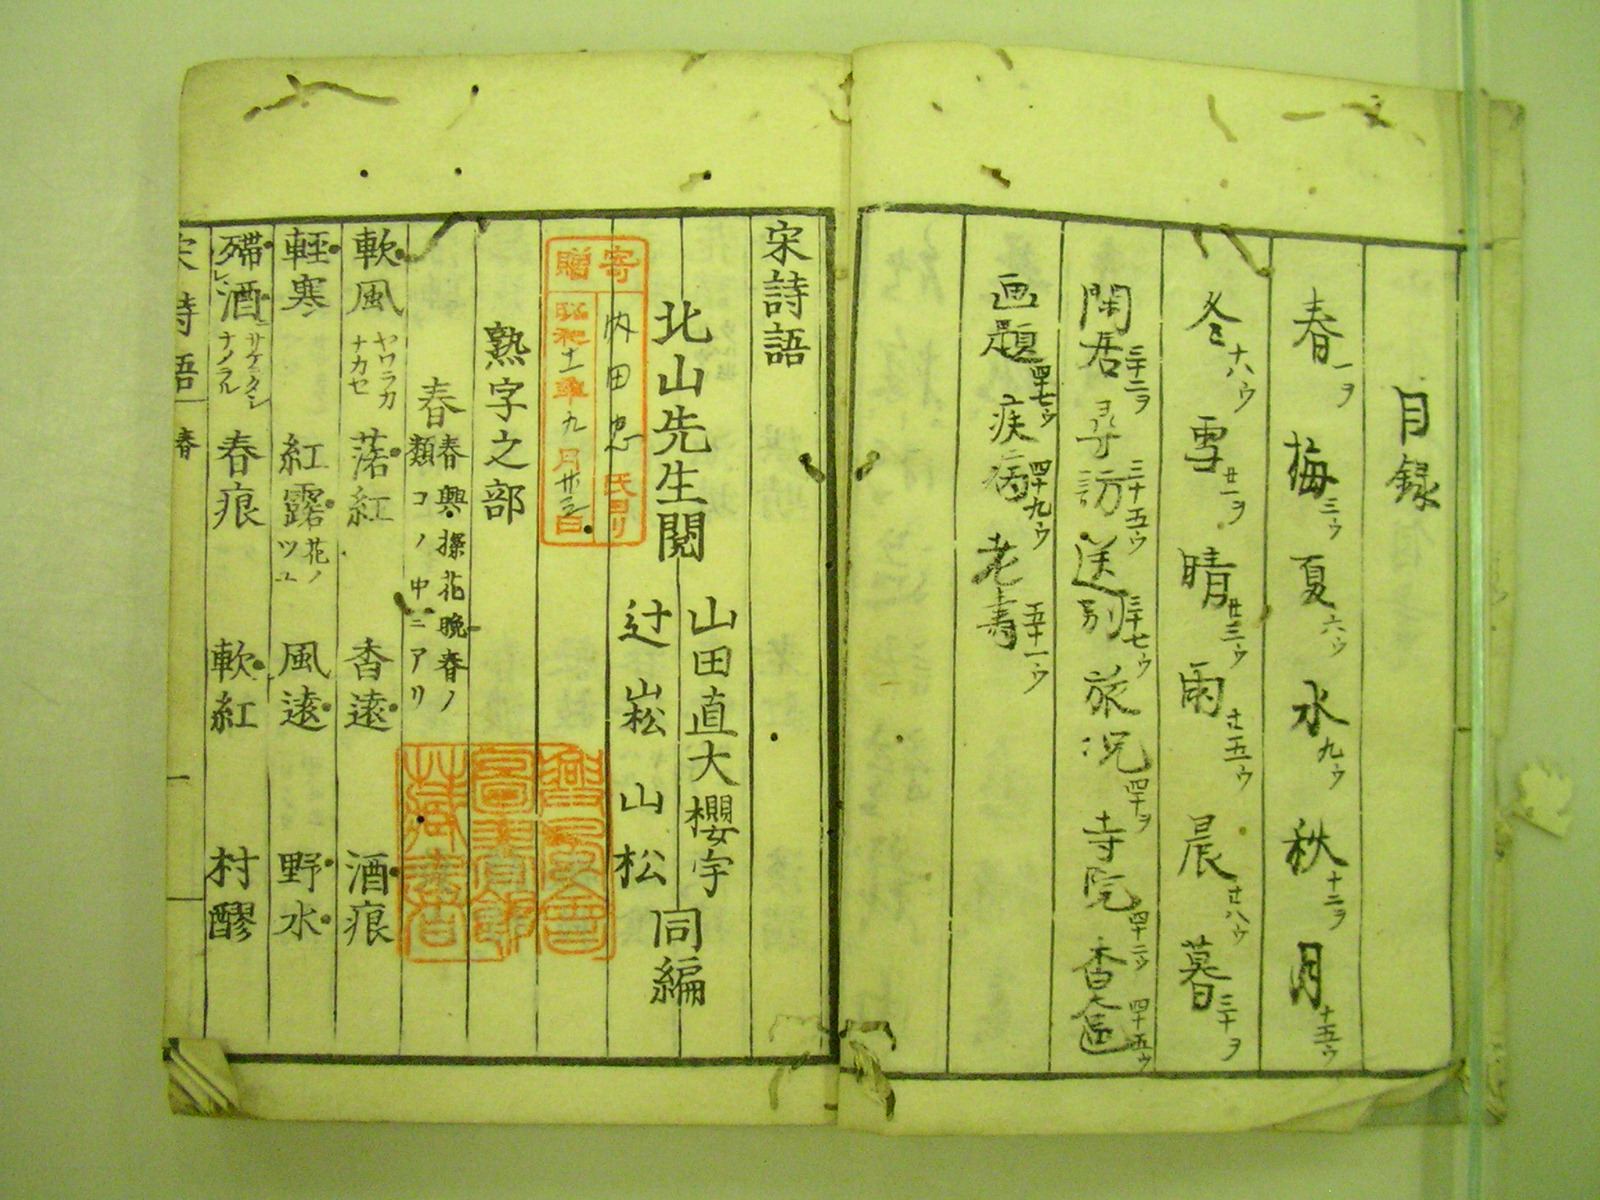 目録
春一ヲ 梅三ウ 夏六ウ 水九ウ 秋十二ヲ 月十五ウ
冬十八ウ 雪廿一ヲ 晴廿三ウ 雨廿五ウ 晨廿八ウ 暮三十ヲ
閑居三十二ヲ 尋訪三十五ウ 送別三十七ウ 旅況四十ヲ 寺院四十二ウ 香奩四十五ウ
画題四十七ウ 疾病四十九ウ 老壽五十一ウ
宋詩語
北山先生閲
山田直大櫻宇
辻崧山松
同編
寄贈
内田忠氏ヨリ
昭和十一年九月廿三日
熟字之部
春
春興・探花晩春ノ
類コノ中ニアリ
軟風ヤワラカナカセ 落紅 香遠 酒痕
輕寒 紅露花ノツユ 風遠 野水
殢酒 春痕 軟紅 村醪
宋詩語 春
圖書